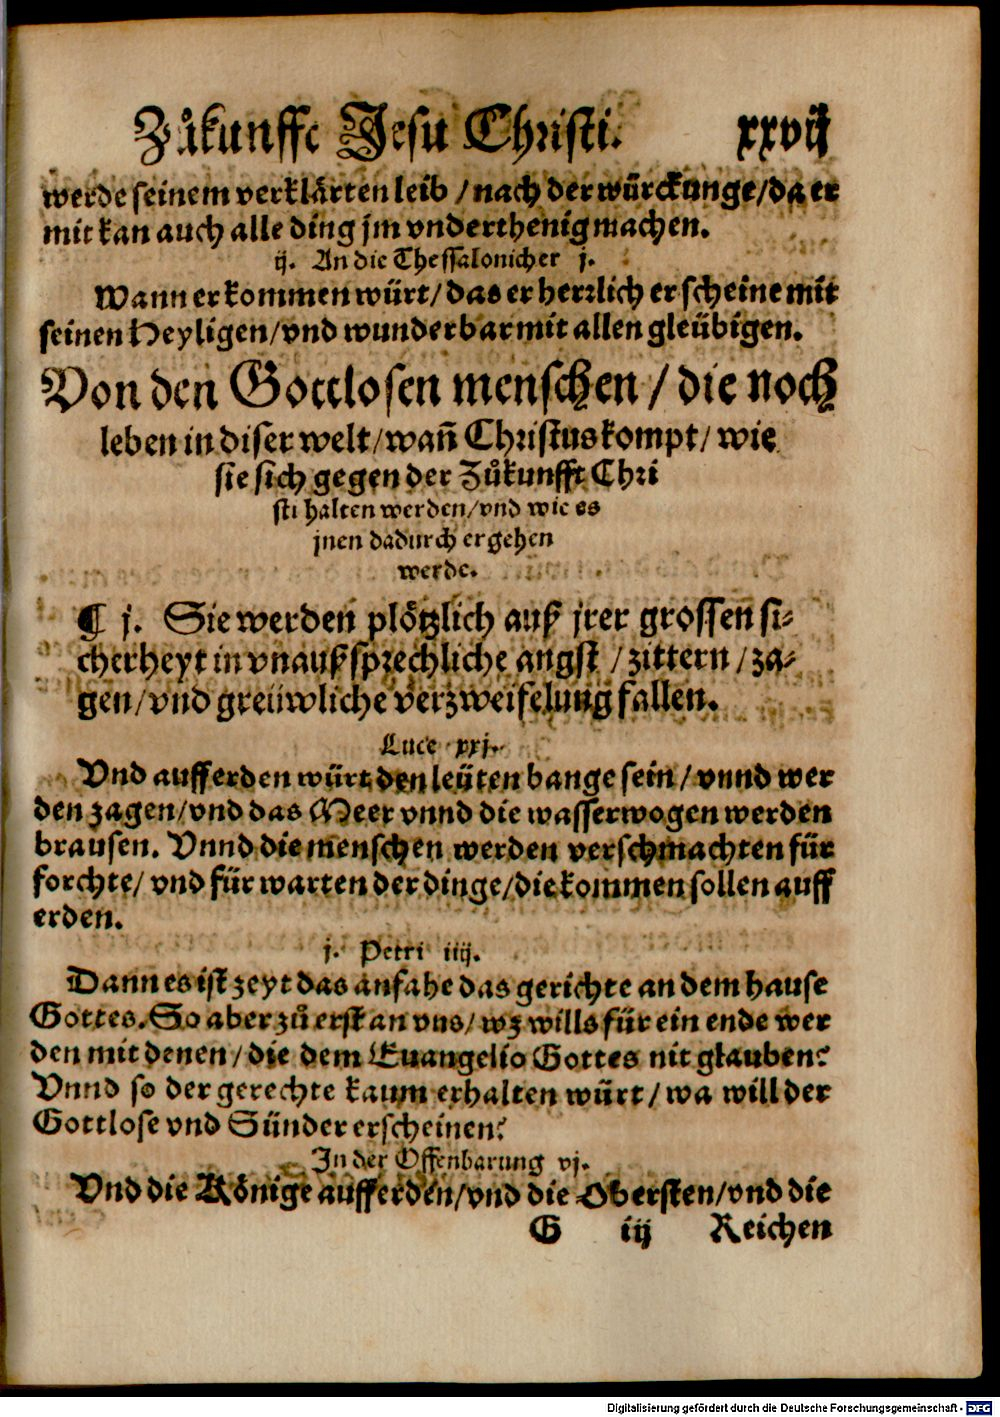 Zůkunfft Jesu Christi. xxvij
werde seinem verklärten leib / nach der würckunge / da er
mit kan auch alle ding jm vnderthenig machen.
ij. An die Thessalonicher j.
Wann er kommen würt / das er herrlich erscheine mit
seinen Heyligen / vnd wunderbar mit allen gleübigen.
Von den Gottlosen menschen / die noch
leben in diser welt / wañ Christus kompt / wie
sie sich gegen der Zůkunfft Chri
sti halten werden / vnd wie es
jnen dadurch ergehen
werde.
¶ j. Sie werden plötzlich auß jrer grossen si-
cherheyt in vnaußsprechliche angst / zittern / za-
gen / vnd greüwliche verzweifelung fallen.
Luce xxj.
Vnd auff erden würt den leüten bange sein / vnnd wer
den zagen / vnd das Meer vnnd die wasserwogen werden
brausen. Vnnd die menschen werden verschmachten für
forchte / vnd für warten der dinge / die kommen sollen auff
erden.
j. Petri iiij.
Dann es ist zeyt das anfahe das gerichte an dem hause
Gottes. So aber zů erst an vns / wz wills für ein ende wer
den mit denen / die dem Euangelio Gottes nit glauben?
Vnnd so der gerechte kaum erhalten würt / wa will der
Gottlose vnd Sünder erscheinen?
In der Offenbarung vj.
Vnd die Könige auff erden / vnd die Obersten / vnd die
G iij Reichen
Digitalisierung gefördert durch die Deutsche Forschungsgemeinschaft - DFG